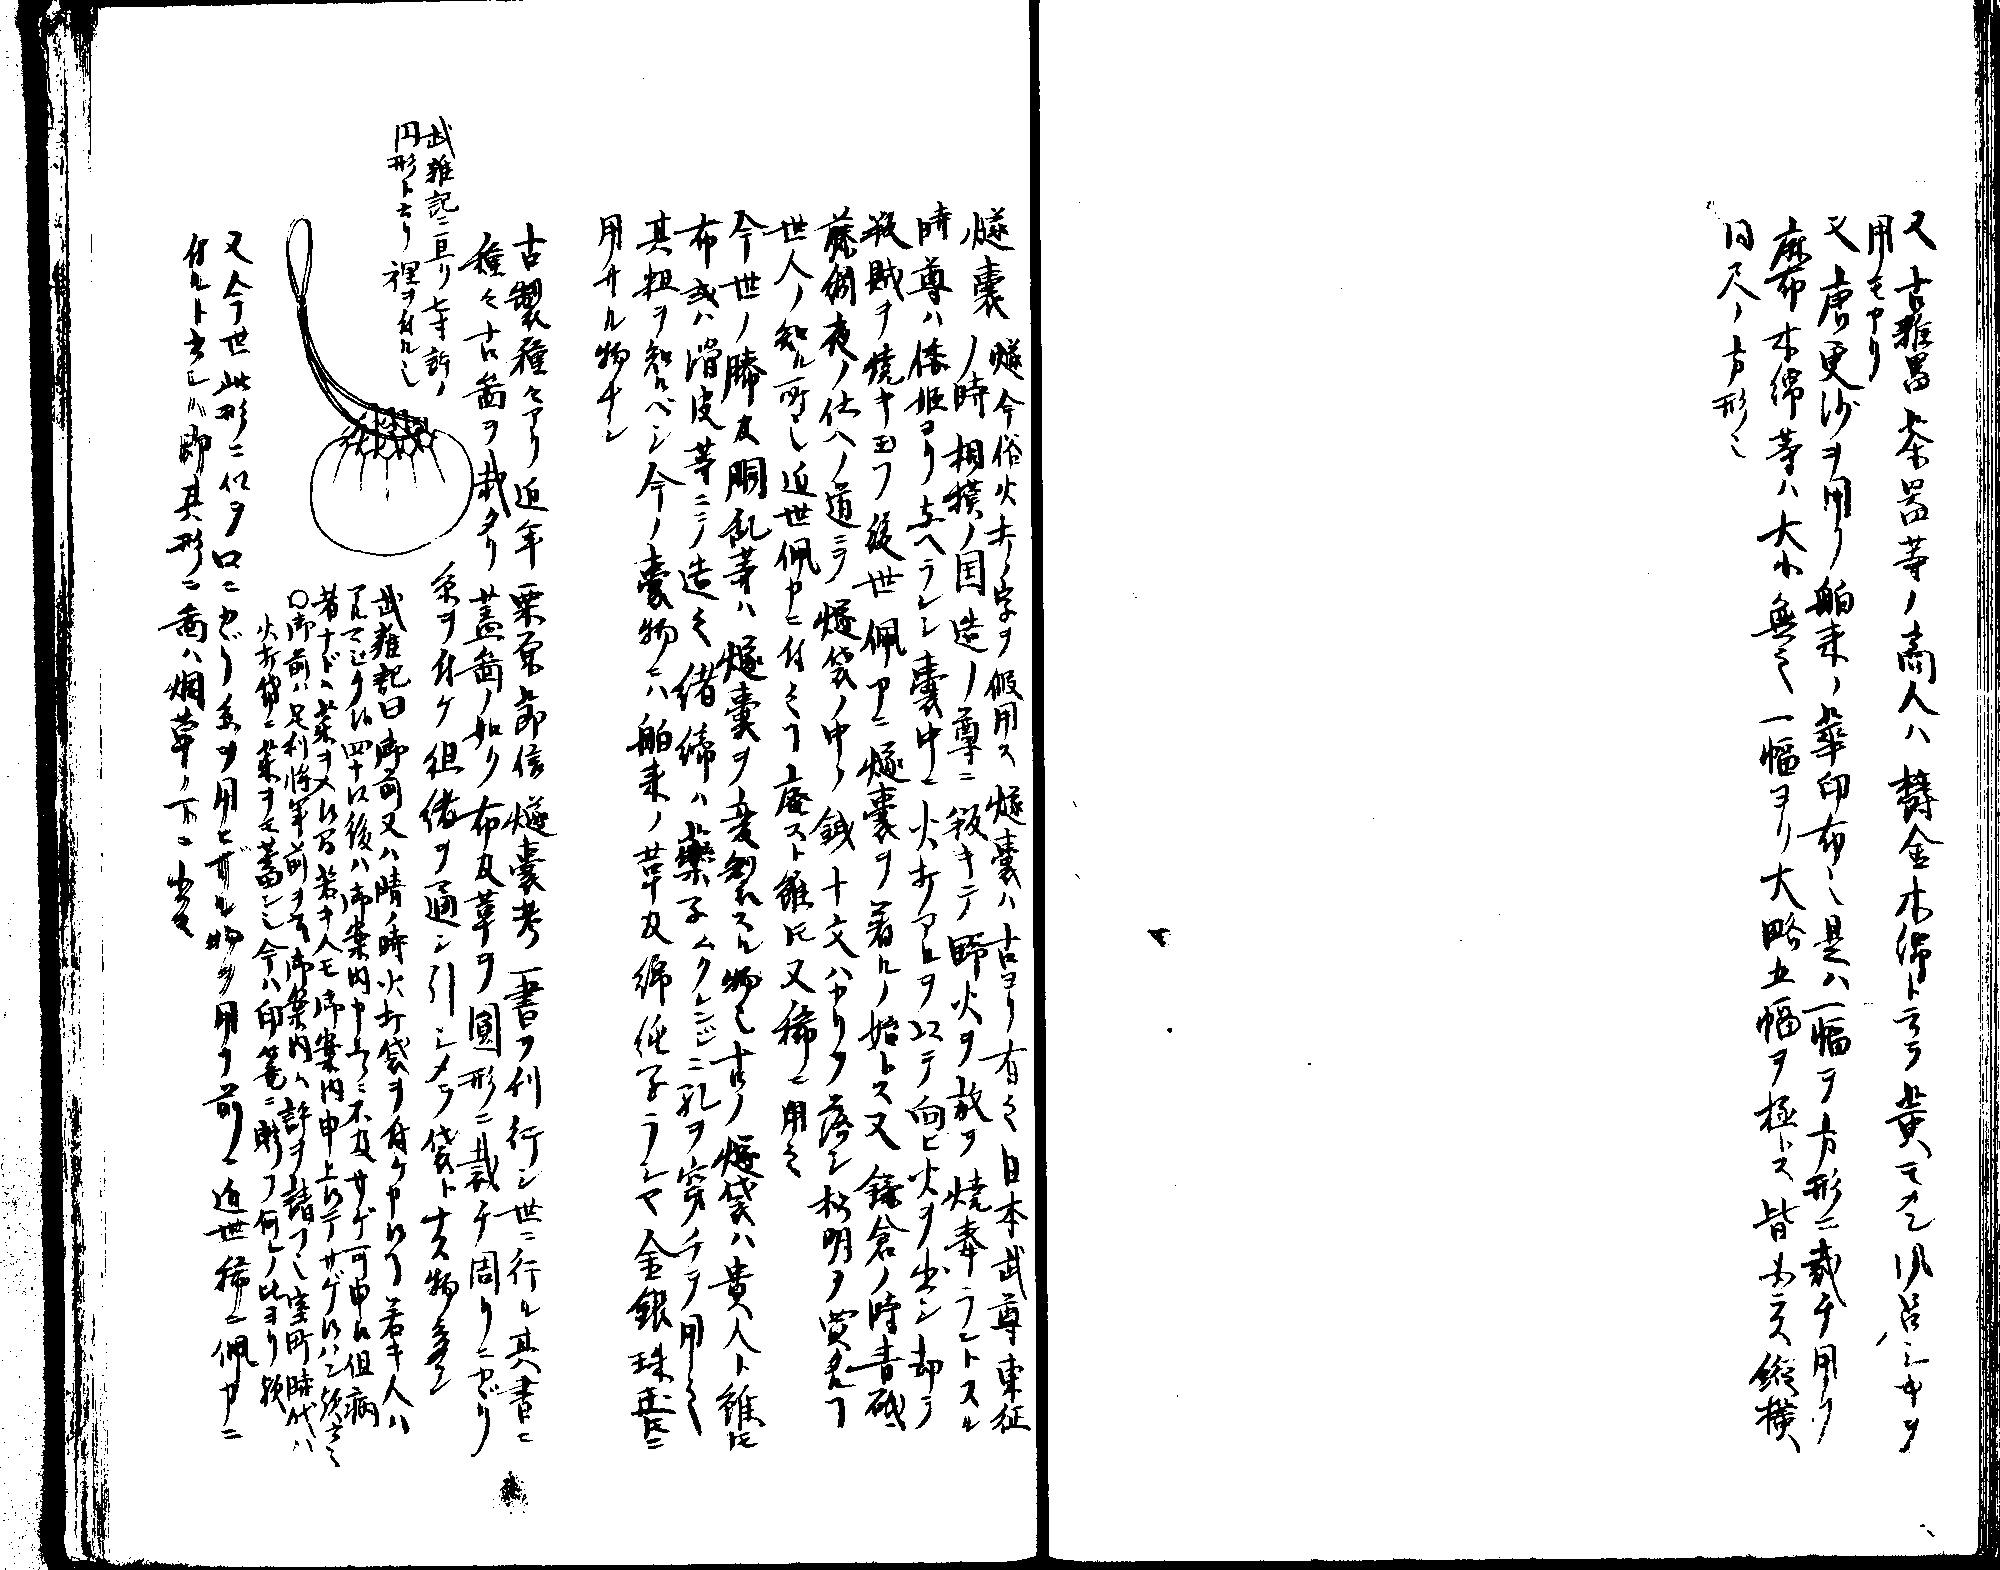 又古着古器茶器等ノ商人ハ欝金木綿トテ黄モメン風呂シキヲ
用モアリ
又唐更沙ヲ用フ舶来ノ華印布也是ハ一幅ヲ方形ニ裁チ用フ
麻布木綿等ハ大小無之一幅ヨリ大略五幅ヲ極トス皆必ス縦横
同尺ノ方形也
燧囊 燧今俗火打ノ字ヲ仮用ス燧囊ハ古ヨリ有之日本武尊東征
ノ時相摸ノ国造ノ尊ニ叛キテ野火ヲ放テ焼奉ラントスル
時尊ハ倭姫ヨリ与ヘラレシ囊中ニ火打アルヲ以テ向ヒ火ヲ出シ却テ
叛賊ヲ焼キ玉フ後世佩刀ニ燧囊ヲ着ルノ始トス又鎌倉ノ時青砥
藤綱夜ノ仕ヘノ道ニテ燧袋ノ中ノ銭十文ハカリヲ落シ松明ヲ買テ
世人ノ知ル所也近世佩刀ニ付之廃スト雖トモ又稀ニ用之
今世ノ 及胴乱等ハ燧囊ヲ変製スル物也古ノ燧袋ハ貴人ト雖トモ
布或ハ滑皮等ニテ造之緒締ハ菓子ムクレンジニ孔ヲ穿チテ用之
其粗ヲ知ルベシ今ノ囊物ニハ舶来ノ革及綿純子ラシヤ金銀珠玉
用サル物ナシ
古製種々アリ近年栗原節信燧囊考一書ヲ刊行シ世ニ行ル其書ニ
種々古図ヲ載タリ蓋図ノ如ク布及革ヲ圓形ニ裁チ周リニカヾリ
糸ヲ付ケ組緒ヲ通シ引シメテ袋トナス物多シ
武雑記ニ見リ古寺訴ノ
円形トナリ裡ヲ付ルノ
武雑記曰御前又ハ晴ノ時火打袋ヲ付ケ 若キ人ハ
四十以後ハ御案内申 ニ不及サゲ可申候但病
者ナドハ薬ヲ入候間若キ人モ御案内申上候テサゲ候ハン歟云々
○御前ハ足利将軍前ヲ云御案内ハ許ヲ請フ也室町時代ハ
火打袋ニ薬ヲモ蓄シ也今ハ印篭ニ貯フ何レノ比ヨリ歟
又今世此形ニ似テ口ニカヾリ糸ヲ用ヒザル物ヲ用フ前ノ近世稀ニ佩刀ニ
付ルト云シハ即其形ニ図ハ烟草ノ下ニ出ス